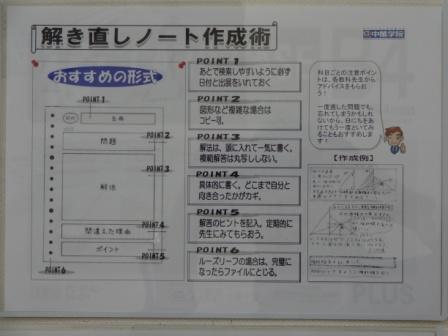 解き直しノート作成術
中萬学院
おすすめの形式
POINT 1
名前
問題
POINT 2
POINT 3
解法
POINT 4
間違えた理由
POINT 5
ポイント
POINT 6
POINT 1
あとで検索しやすいように必ず
日付と出展をいれておく
POINT 2
図形など複雑な場合は
コピー可。
POINT 3
解法は、頭に入れて一気に書く。
模範解答は丸写ししない。
POINT 4
具体的に書く。どこまで自分と
向き合ったかがカギ。
POINT 5
解答のヒントを記入。定期的に
先生にみてもらおう。
POINT 6
ルーズリーフの場合は、完璧に
なったらファイルにとじる。
科目ごとの注意ポイン
トは、各教科先生から
アドバイスをもらお
う！
一度直した問題でも、
忘れてしまうかもしれ
ないから、日にちをあ
けてもう一度といてみ
ることもおすすめしま
す！
【作成例】